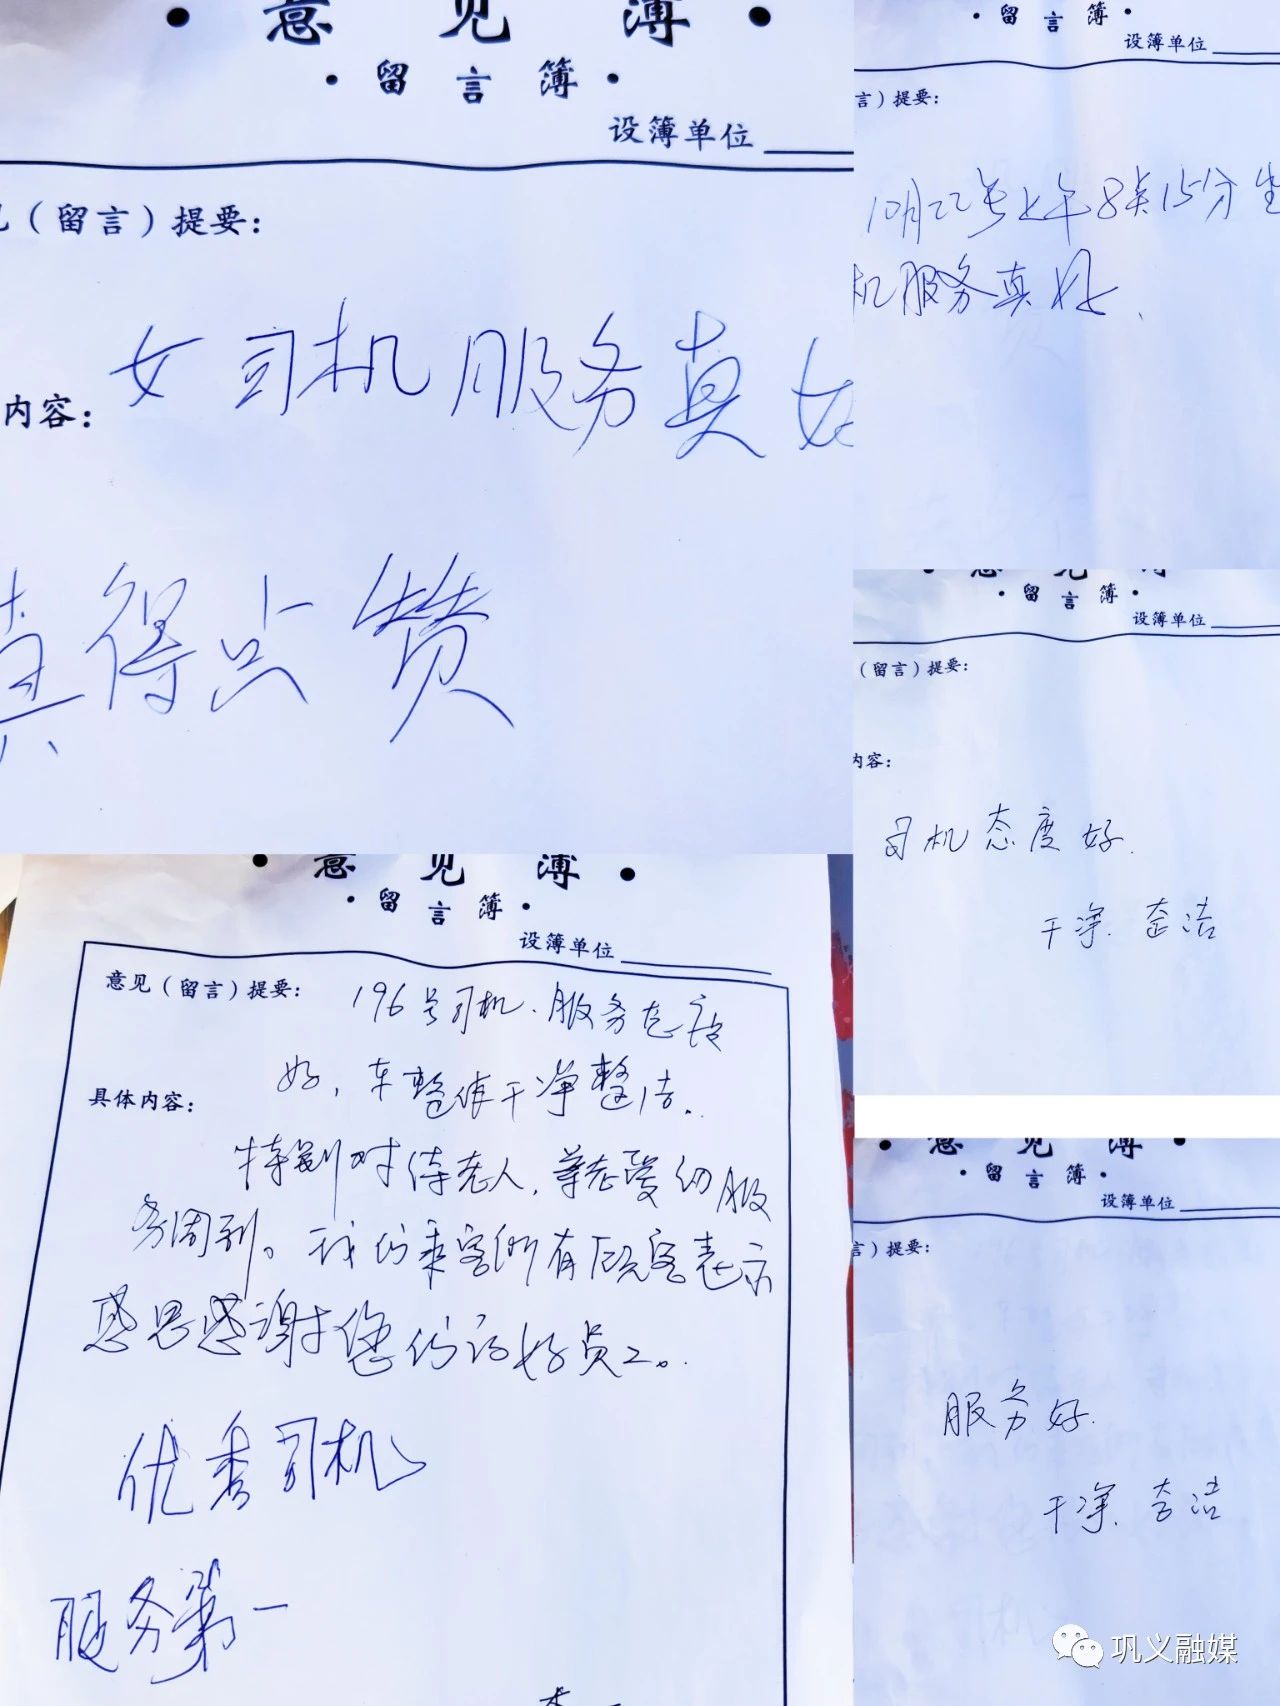 意见簿
·留言簿·
设簿单位
（留言）提要：
女司机服务真好
内容：
真得点赞
·留言簿·
设簿单位
言）提要：
10月22号上午8点15分坐
机服务真好、
意见簿
·留言簿·
设簿单位
（留言）提要：
内容：
司机态度好.
干净.整洁
意见簿
·留言簿·
设簿单位
意见（留言）提要：
196号司机.服务态度
好，车整体干净整洁..
具体内容：
特别对待老人，尊老爱幼服
务周到。我们乘客们所有顾客表示
感恩感谢您们的好员工。
优秀司机
服务第一
意见簿
·留言簿·
设簿单位
言）提要：
服务好.
干净.整洁
巩义融媒